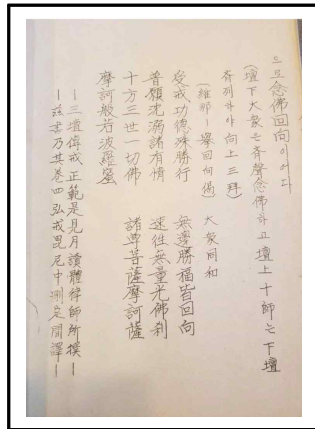 으로 念佛回向이어다
(壇下大衆은 齊聲念佛하고 壇上十師는 下壇
齊列하야 向上三拜)
(維那ー擧回向偈) 大衆同和
受戒功德殊勝行 無邊勝福皆回向
普願沈溺諸有情 速往無量光佛刹
十方三世一切佛 諸尊菩薩摩訶薩
摩訶般若波羅蜜
ー三壇傳戒正範是見月讀體律師所撰ー
ー玆書乃其卷四弘戒毘尼中刪定間譯ー